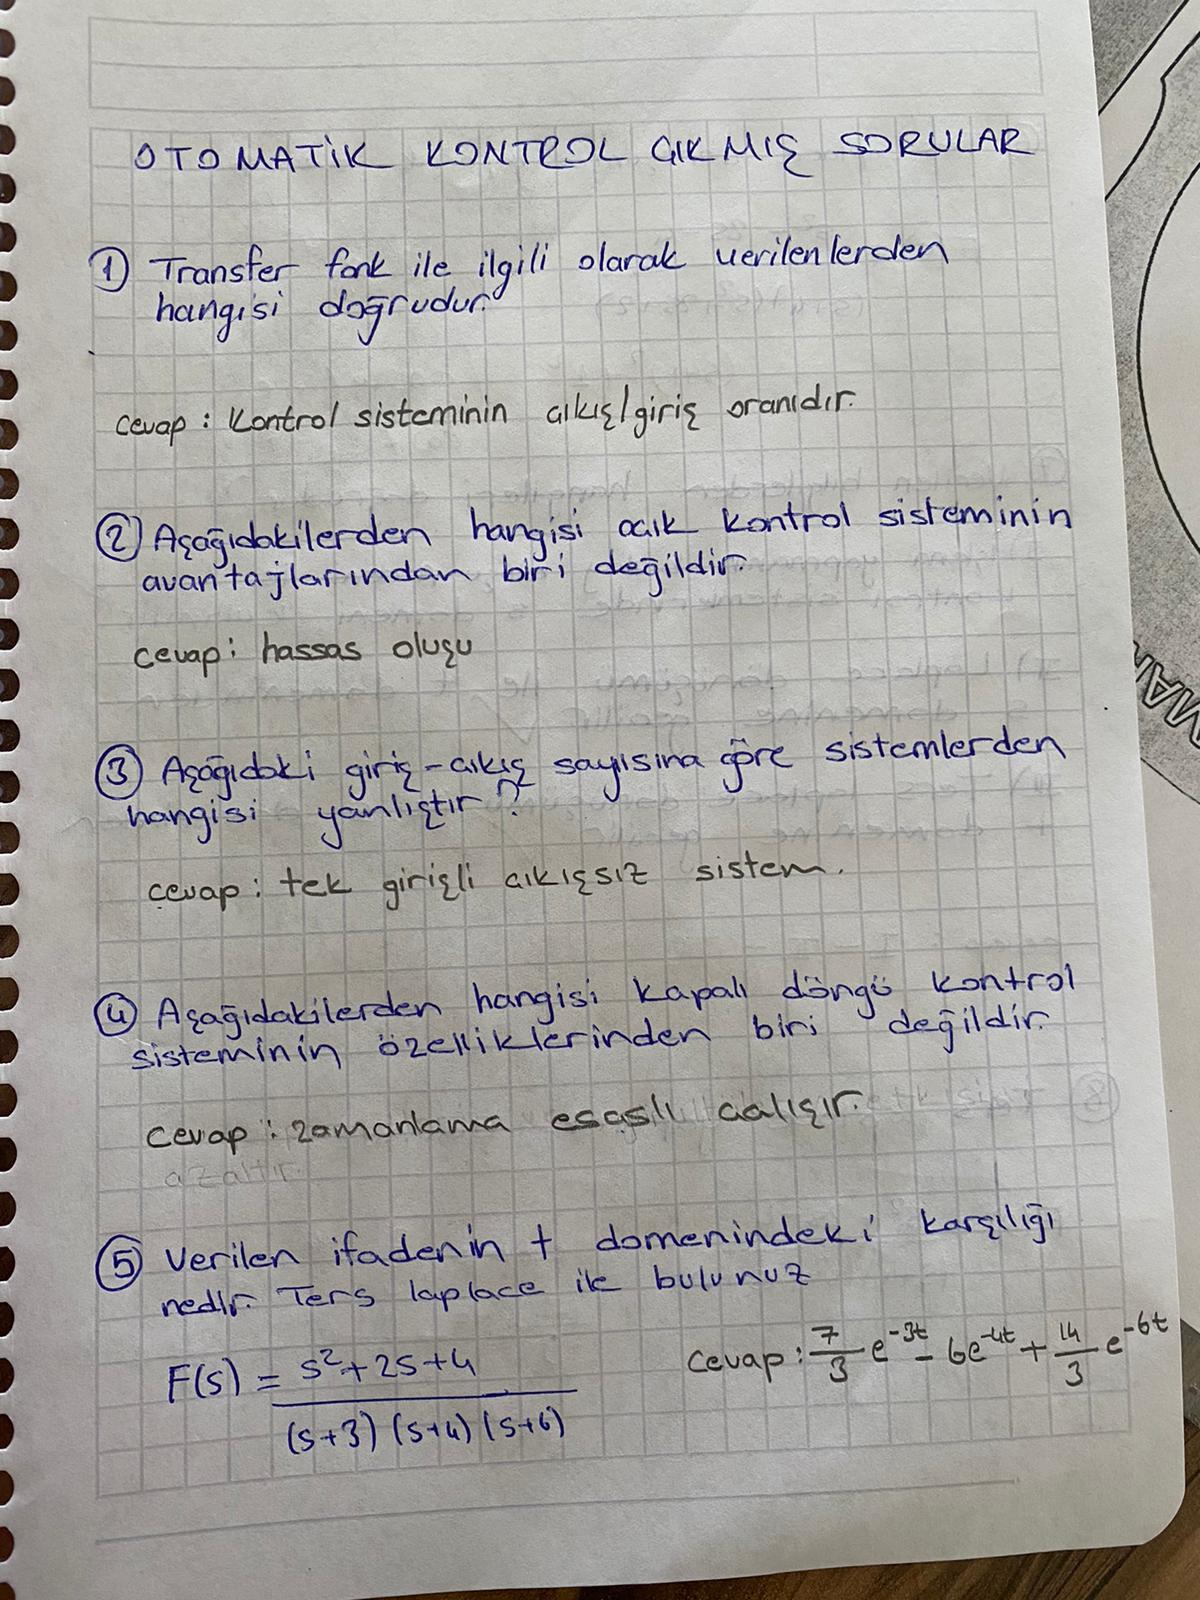 OTOMATİK KONTROL ÇIKMIŞ SORULAR
① Transfer fonk ile ilgili olarak verilenlerden
hangisi doğrudur.
cevap : Kontrol sisteminin çıkış/giriş oranıdır.
② Aşağıdakilerden hangisi açık kontrol sisteminin
avantajlarından biri değildir.
cevap : hassas oluşu
③ Aşağıdaki giriş-çıkış sayısına göre sistemlerden
hangisi yanlıştır?
cevap : tek girişli çıkışsız sistem.
④ Aşağıdakilerden hangisi kapalı döngü kontrol
sisteminin özelliklerinden biri değildir.
cevap : zamanlama esaslı çalışır.
azaltır.
⑤ Verilen ifadenin t domenindeki karşılığı
nedir. Ters laplace ile bulunuz
F(s) = s²+2s+4 / (s+3)(s+4)(s+6)
cevap : 7/3 e^-3t - 6e^-4t + 14/3 e^-6t